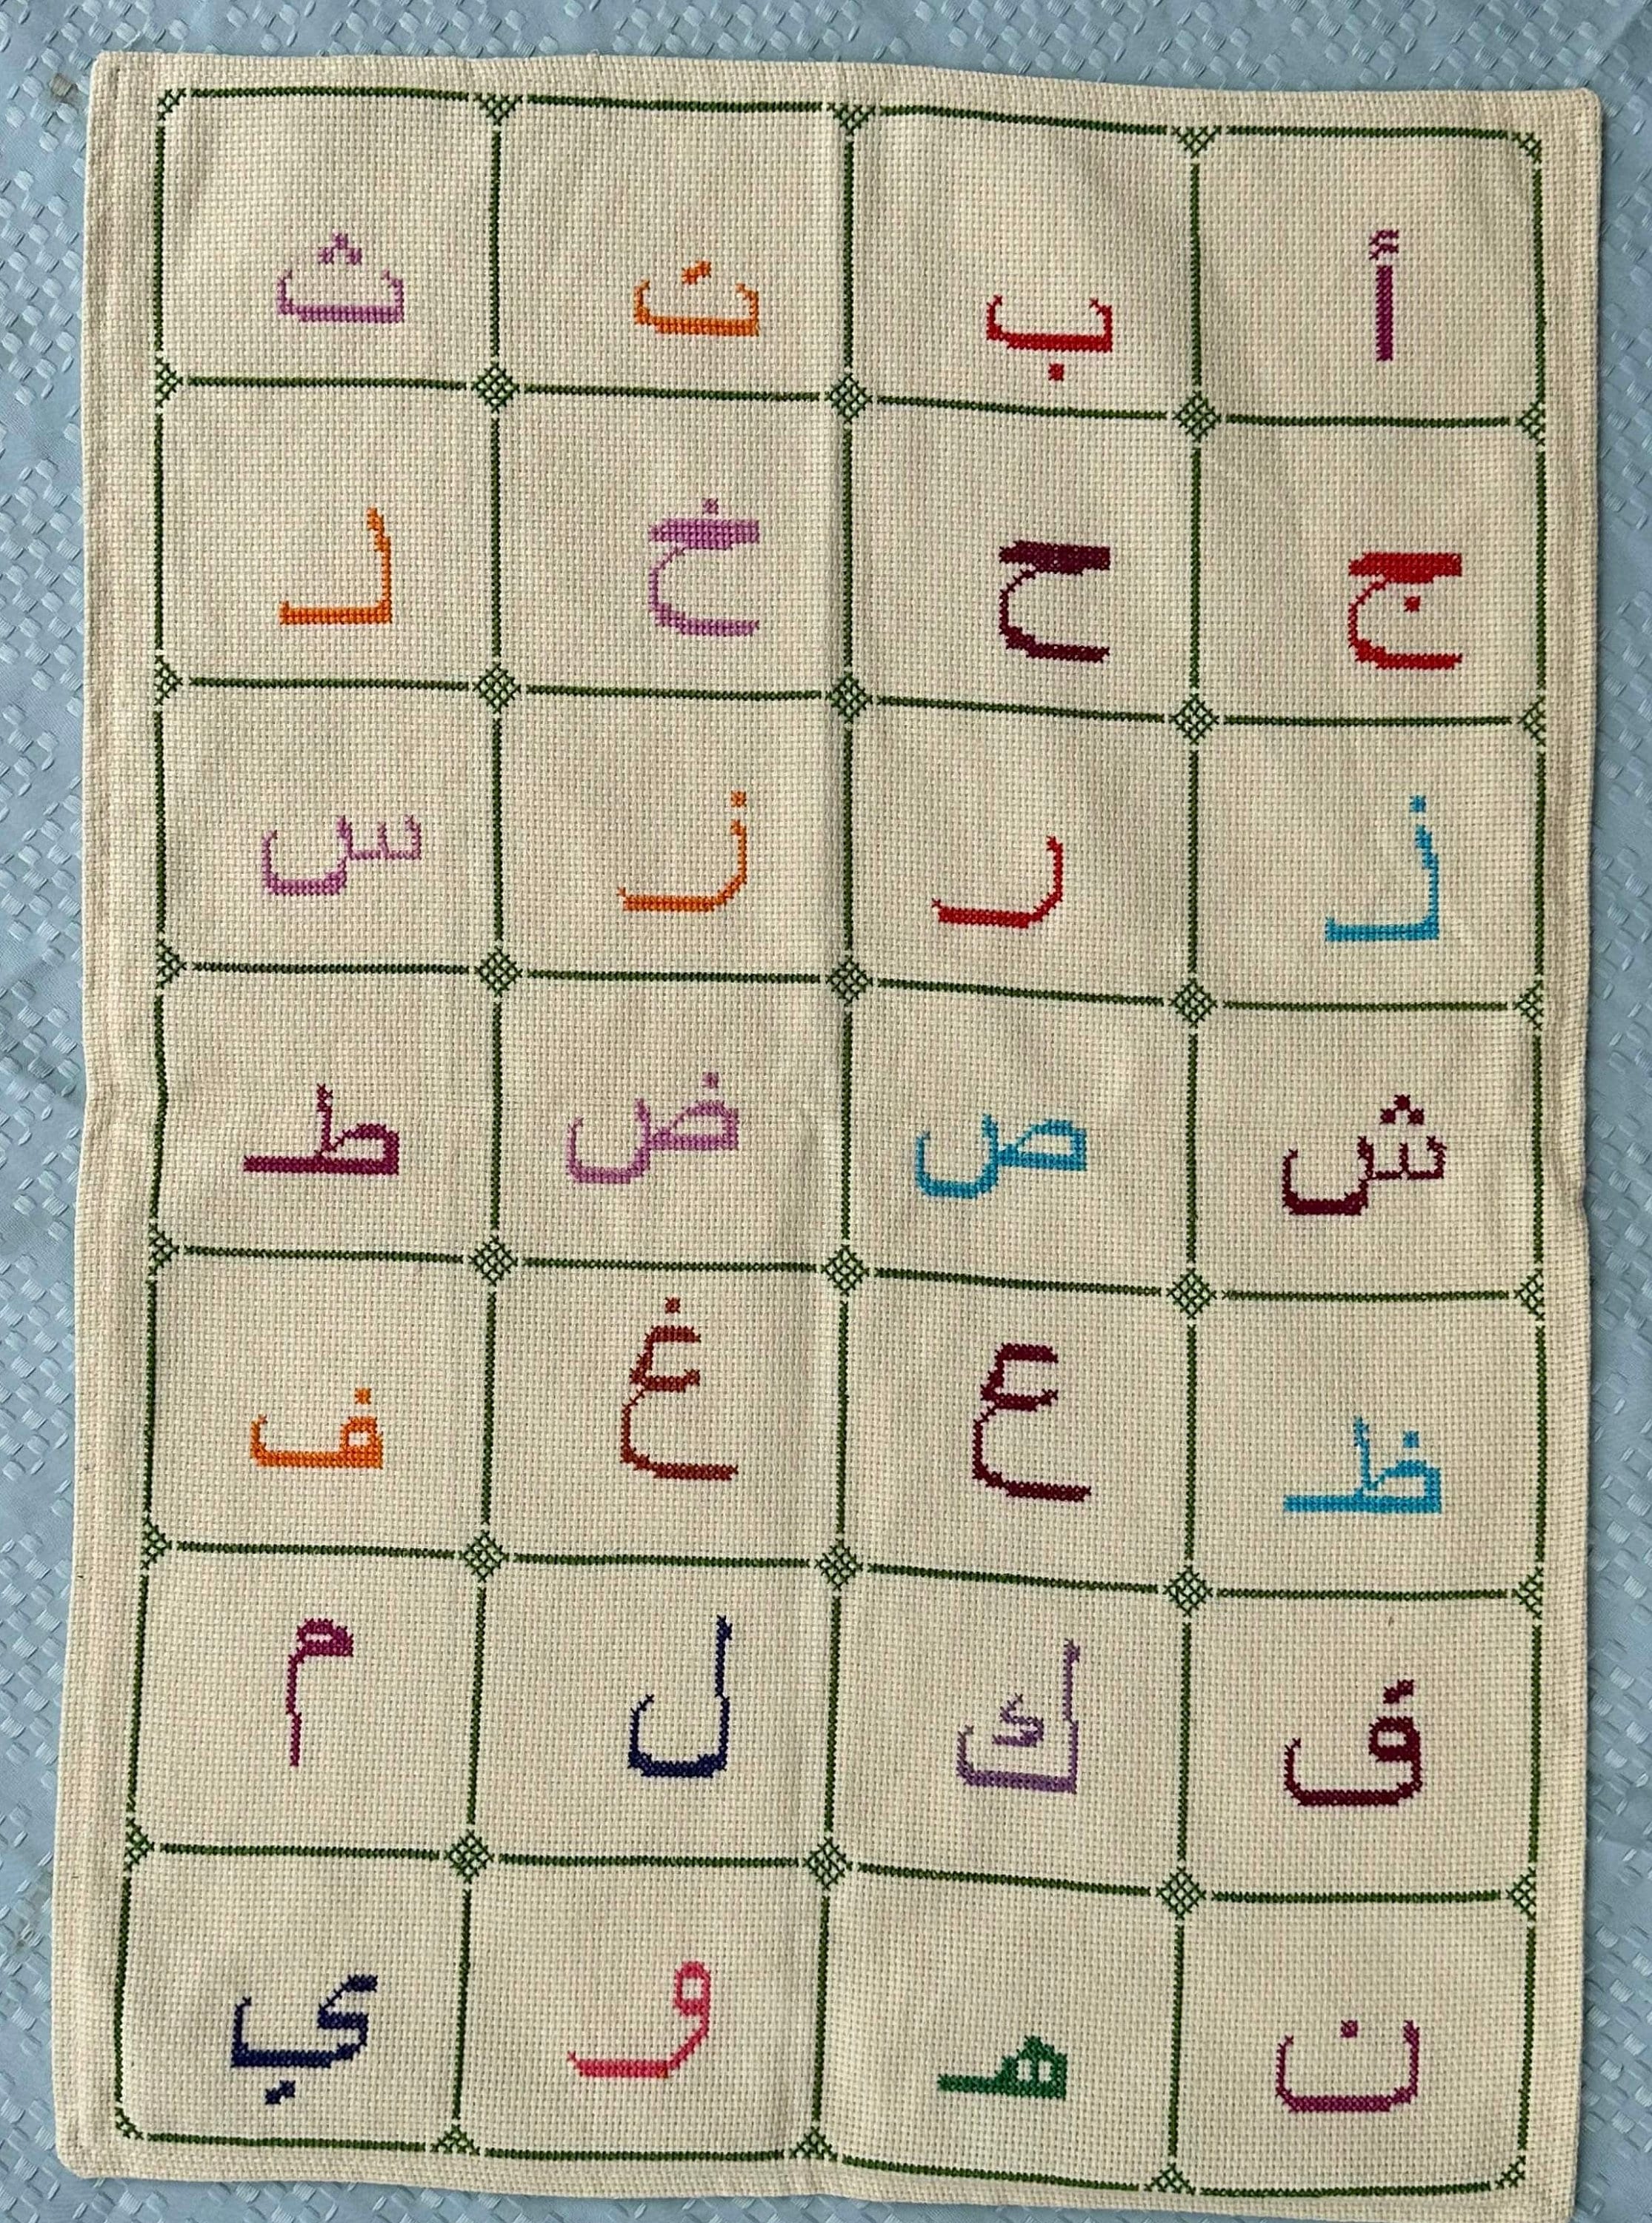 أ ب ت ث
ج ح خ د
ذ ر ز س
ش ص ض ط
ظ ع غ ف
ق ك ل م
ن هـ و ي